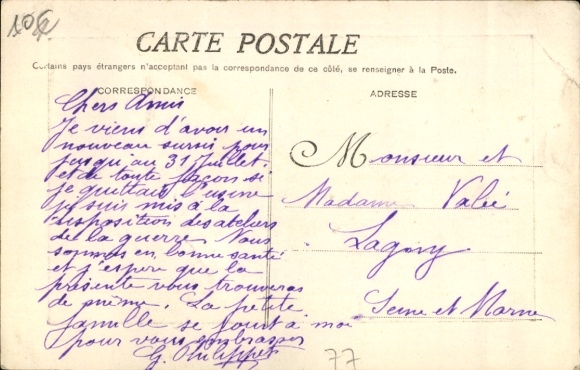 10€
CARTE POSTALE
Certains pays étrangers n'acceptant pas la correspondance de ce côté, se renseigner à la Poste.
CORRESPONDANCE
Chers Amis
Je viens d'avoir un
nouveau sursis pour
jusqu'au 31 Juillet.
et de toute façon si
je quittais l'usine
je suis mis à la
disposition des ateliers
de la guerre. Nous
sommes en bonne santé
et j'espère que la
présente vous trouveras
de même. La petite
famille se joint à moi
pour vous embrasser
G. Philippet
ADRESSE
Monsieur et
Madame Valié
Lagny
Seine et Marne
77